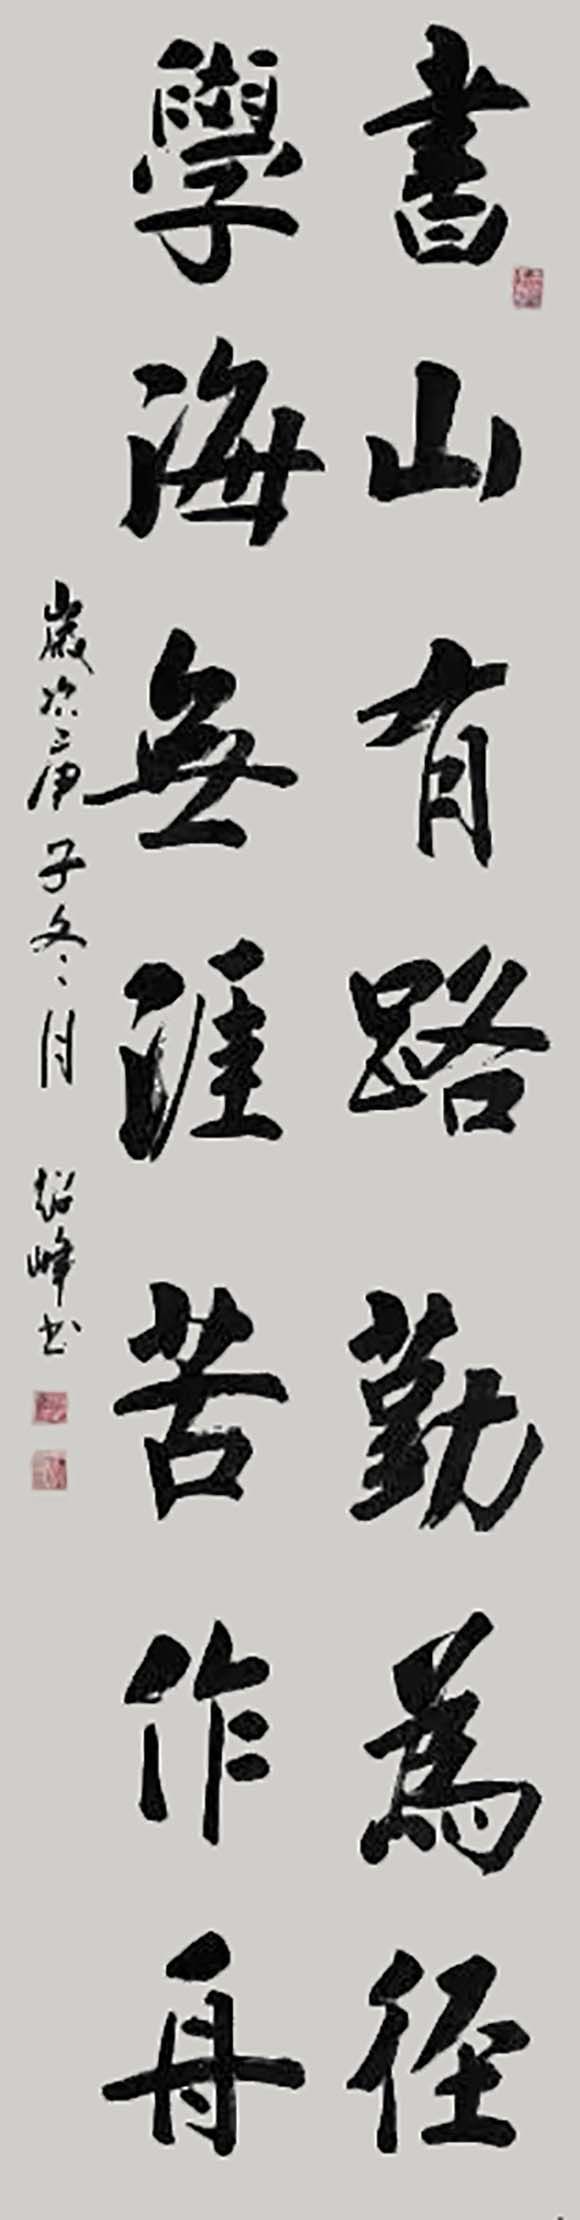 書山有路勤為径
學海無涯苦作舟
歲次庚子冬月 超峰书